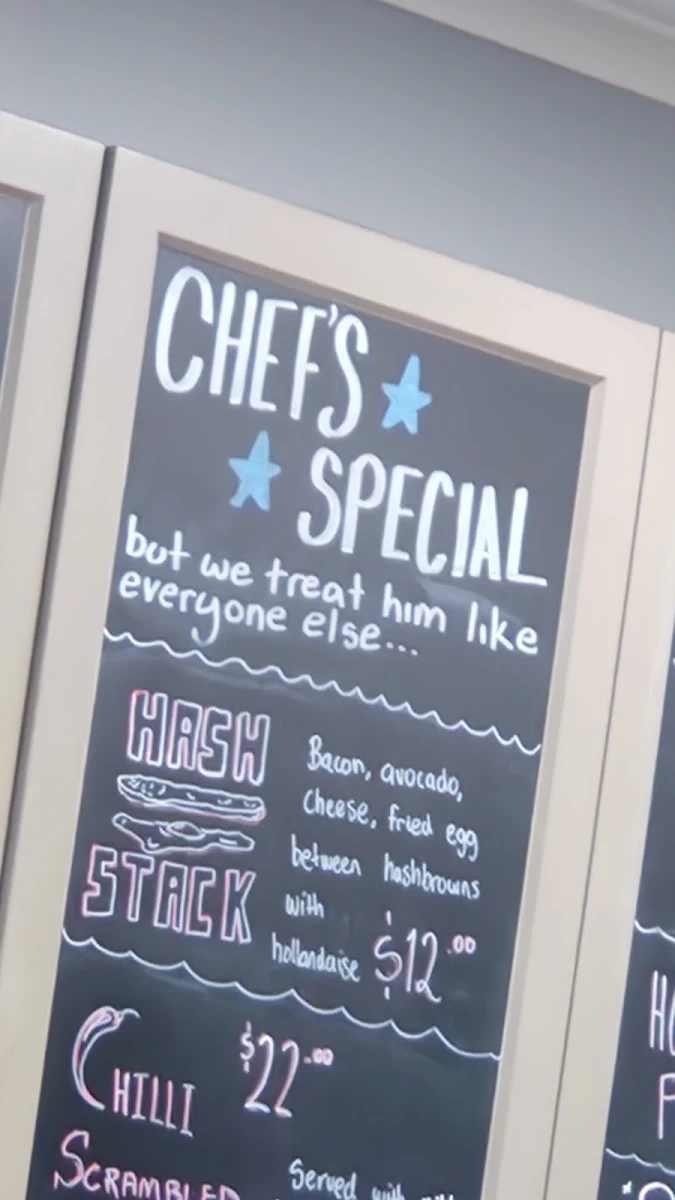 CHEF'S
SPECIAL
but we treat him like
everyone else...
HASH
STACK
Bacon, avocado,
Cheese, fried egg
between hashbrowns
with
hollandaise $12.00
CHILLI $22.00
SCRAMBLED
Served with